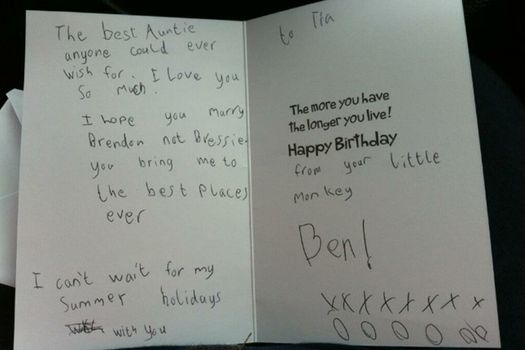 The best Auntie
anyone could ever
wish for. I Love you
So much.
I hope you marry
Brendon not Bressie
you bring me to
the best Places
ever
I can't wait for my
Summer holidays
with you
to Tia
The more you have
the longer you live!
Happy Birthday
from your little
monkey
Ben!
XXXXXXXX
OOOO